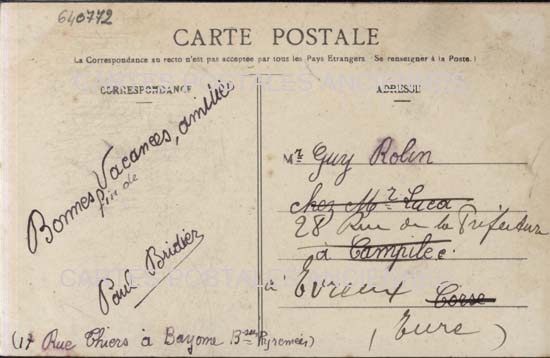 640772
CARTE POSTALE
La Correspondance au recto n'est pas acceptée par tous les Pays Etrangers. Se renseigner à la Poste.)
CARTES POSTALES ANCIENNES
CORRESPONDANCE
ADRESSE
Bonnes Vacances, amitiés
fin de
Paul Bridier
Mr Guy Rolin
chez Mr Luca
28 Rue de la Préfecture
à Campile
à Evreux Corse
(Eure)
CARTES POSTALES ANCIENNES
(17 Rue Thiers à Bayonne Bses Pyrénées)